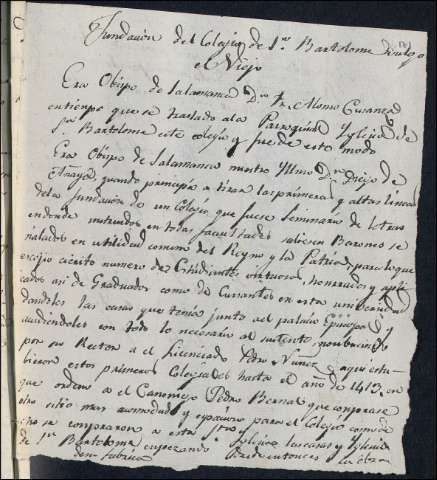 Fundación del Colegio de Sn. Bartolome
el Viejo
Era Obispo de Salamanca Dn. Fr. Alonso Cusanza
en tiempo que se traslado ala Parroquial Yglesia de
Sn. Bartolome este colegio y fue de este modo
Era Obispo de Salamanca nuestro Yllmo Dn. Diego de
Anaya, quando principio a tirar las primeras y altas lineas
dela fundación de un Colegio, que fuese Seminario de letras
en donde instruidos en todas facultades saliesen Barones se
ñalados en utilidad comun del Reyno y la Patria, para lo que
escojio cierto numero de Estudiantes virtuosos, honrrados y apli
cados asi de Graduados como de Cursantes en esta universidad
dandoles las casas que tenia junto al palacio Episcopal y
asistiendoles con todo lo necesario al sustento, nombrando
por su Rector a el Licenciado Pedro Nuñez y aqui estu
bieron estos primeros Colegiales hasta el año de 1413, en
que ordeno a el Canonigo Pedro Bernal que comprase
otro sitio mas acomodado y espacioso para el Colegio como de
cho se compraron a este fin las casas y Yglesia
de Sn. Bartolome empezando desde entonces la obra
de su fabrica